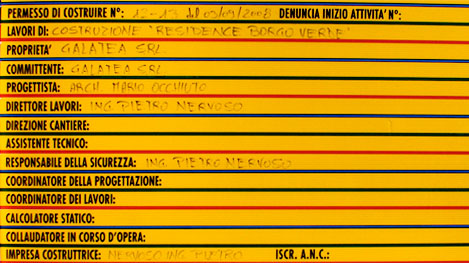 PERMESSO DI COSTRUIRE N°: 12-13 del 09/09/2008 DENUNCIA INIZIO ATTIVITA' N°:
LAVORI DI: COSTRUZIONE "RESIDENCE BORGO VERNE"
PROPRIETA' GALATEA SRL
COMMITTENTE: GALATEA SRL
PROGETTISTA: ARCH. MARIO OCCHIUTO
DIRETTORE LAVORI: ING. PIETRO NERVOSO
DIREZIONE CANTIERE:
ASSISTENTE TECNICO:
RESPONSABILE DELLA SICUREZZA: ING. PIETRO NERVOSO
COORDINATORE DELLA PROGETTAZIONE:
COORDINATORE DEI LAVORI:
CALCOLATORE STATICO:
COLLAUDATORE IN CORSO D'OPERA:
IMPRESA COSTRUTTRICE: NERVOSO ING. PIETRO ISCR. A.N.C.: